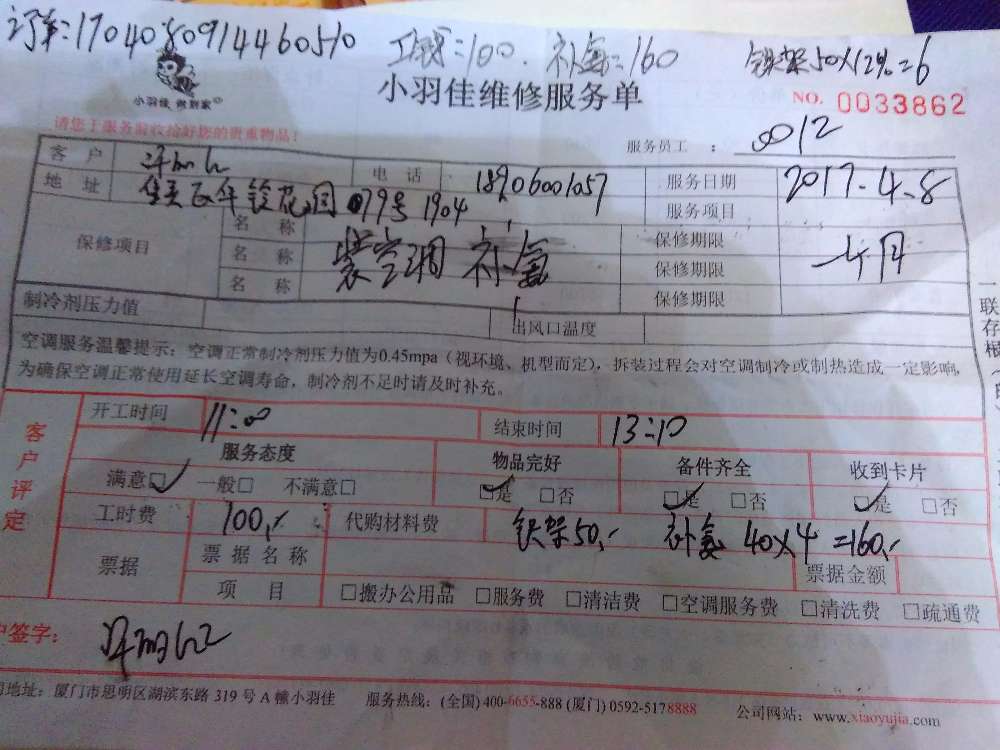 订单:1704080914460510 工时:100. 补氨:160 铁架50×12%=6
小羽佳 做到家
小羽佳维修服务单
NO. 0033862
请您于服务前收拾好您的贵重物品!
服务员工: 0012
客户 电话 18906001057 服务日期 2017-4-8
地址 花园079号1904 服务项目
保修项目 名称 装空调 补氨 保修期限 一年
名称 保修期限
名称 保修期限
制冷剂压力值 出风口温度
空调服务温馨提示:空调正常制冷剂压力值为0.45mpa(视环境、机型而定),拆装过程会对空调制冷或制热造成一定影响,
为确保空调正常使用延长空调寿命,制冷剂不足时请及时补充。
一联存根
客户评定
开工时间 11:00 结束时间 13:10
服务态度 物品完好 备件齐全 收到卡片
满意□ 一般□ 不满意□ □是 □否 □是 □否 □是 □否
工时费 100,- 代购材料费 铁架50,- 补氨 40×4=160,-
票据 票据名称 票据金额
项目 □搬办公用品 □服务费 □清洁费 □空调服务费 □清洗费 □疏通费
户签字:
地址:厦门市思明区湖滨东路319号A幢小羽佳 服务热线:(全国)400-6655-888(厦门)0592-5178888 公司网站:www.xiaoyujia.com